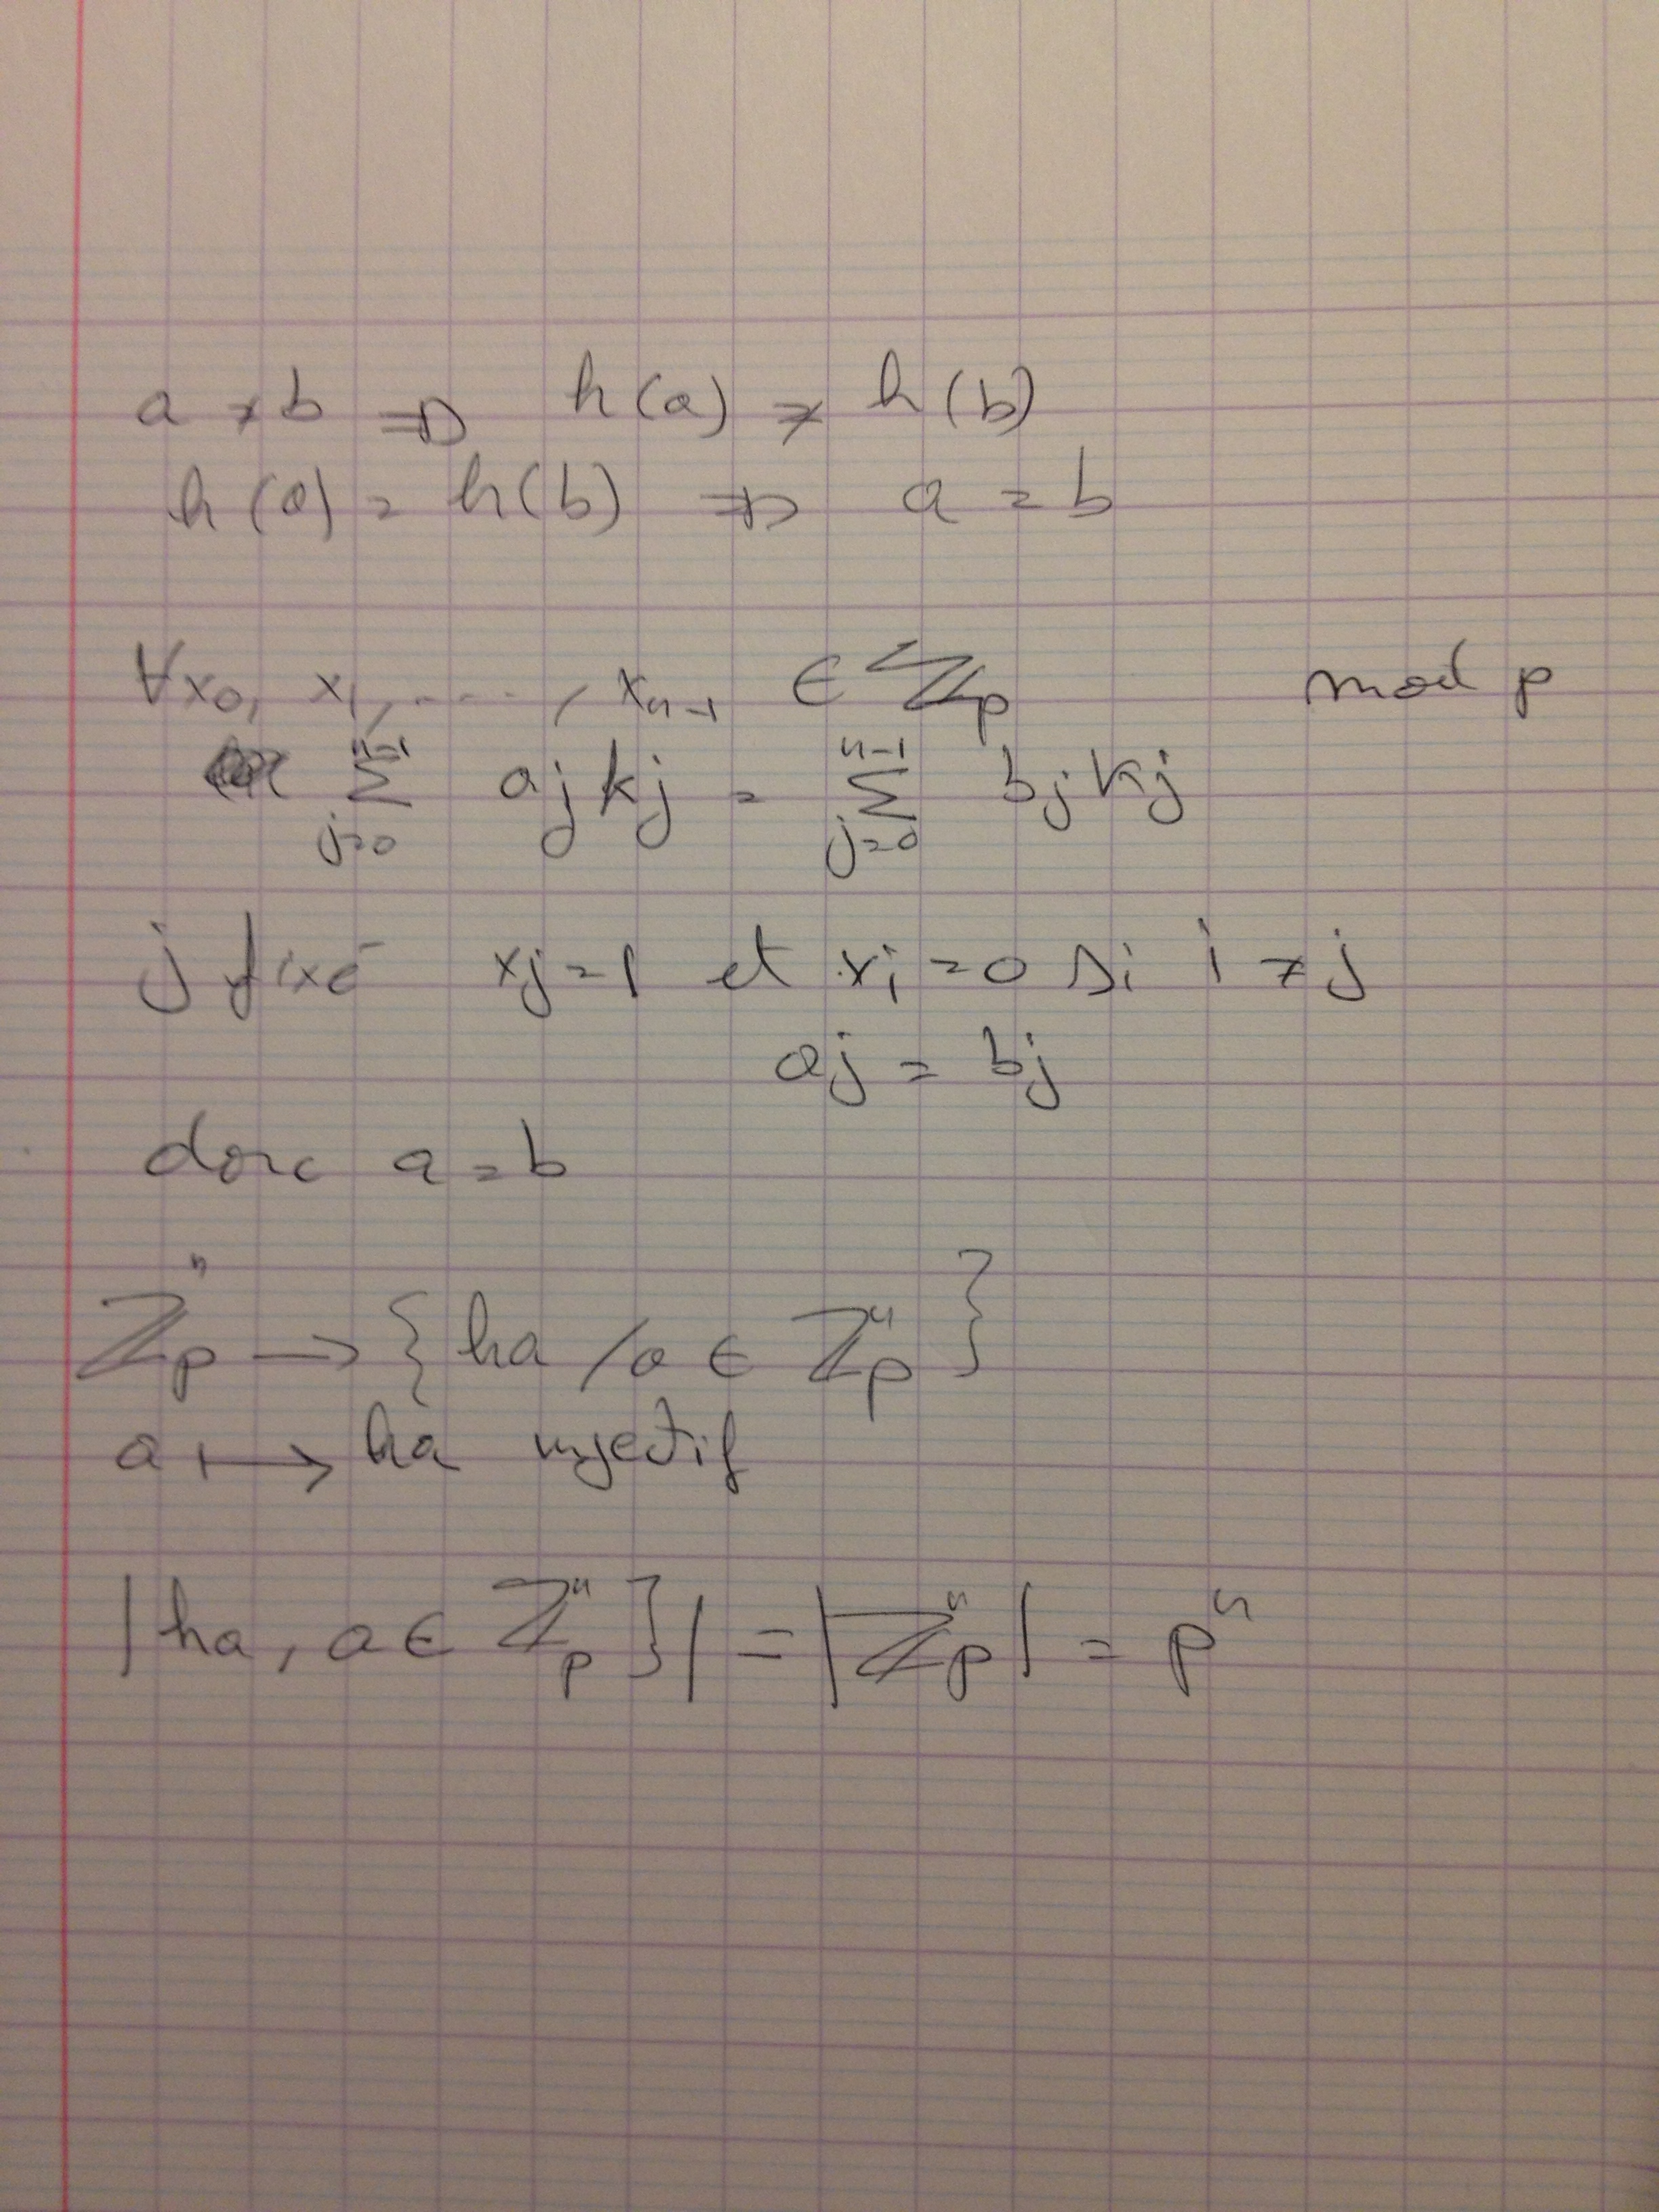 a ≠ b ⇒ h(a) ≠ h(b)
h(a) = h(b) ⇒ a = b
∀x₀, x₁, ...., xₙ₋₁ ∈ ℤₚ mod p
∑_{j=0}^{n-1} aj kj = ∑_{j=0}^{n-1} bj kj
j fixé xj = 1 et xi = 0 si i ≠ j
aj = bj
donc a = b
ℤₚⁿ → { ha / a ∈ ℤₚⁿ }
a ↦ ha injectif
| ha, a ∈ ℤₚⁿ } | = | ℤₚⁿ | = pⁿ